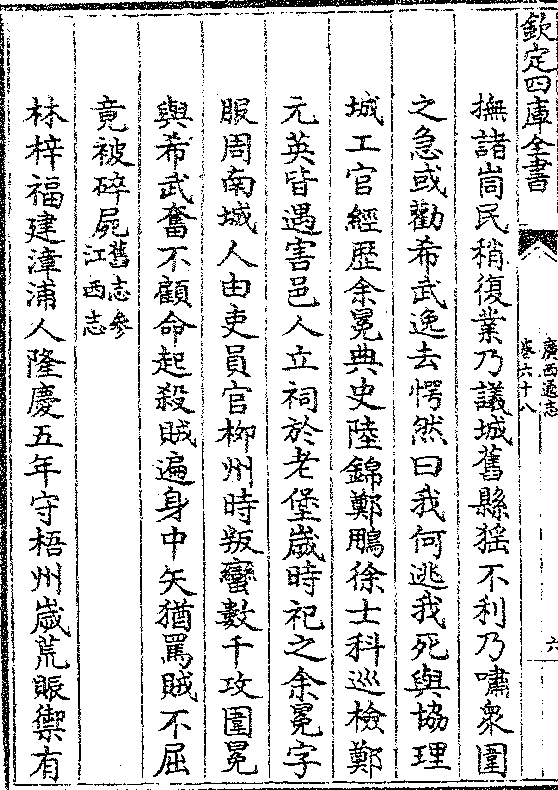 欽定四庫全書
廣西通志
卷六十八
六
撫諸峝民稍復業乃議城舊縣猺不利乃嘯衆圍
之急或勸希武逸去愕然曰我何逃我死與協理
城工官經歴余冕典史陸錦鄭鵰徐士科巡檢鄭
元英皆遇害邑人立祠於老堡嵗時祀之余冕字
服周南城人由吏員官柳州時叛蠻數千攻圍冕
與希武奮不顧命起殺賊遍身中矢猶罵賊不屈
竟被碎屍舊志參
江西志
林梓福建漳浦人隆慶五年守梧州嵗荒賑禦有